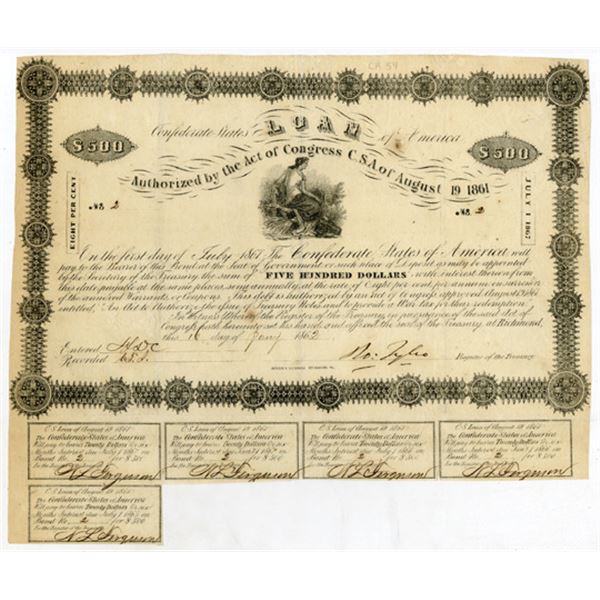 CR 54
Confederate States LOAN of America
$500 $500
Authorized by the Act of Congress C.S.A. of August 19 1861
EIGHT PER CENT JULY 1 1867
No. 2 No. 2
On the first day of July 1867 The Confederate States of America will
pay to the Bearer of this Bond at the Seat of Government or such place of Deposit as may be appointed
by the Secretary of the Treasury the sum of FIVE HUNDRED DOLLARS with interest thereon from
this date payable at the same places semi annually at the rate of Eight per cent per annum on surrender
of the annexed Warrants or Coupons. This debt is authorized by an act of Congress approved August 19 1861
entitled, An Act to Authorize the issue of Treasury Notes and to provide a War Tax for their redemption
In Witness Whereof the Register of the Treasury, in pursuance of the said Act of
Congress hath hereunto set his hand and affixed the seal of the Treasury at Richmond,
this day of Jany 1862
Entered
Recorded
Ro: Tyler Register of the Treasury
C.S. Loan of August 19 1861
The Confederate States of America
Will pay to bearer Twenty Dollars for six
Months Interest due July 1
Bond No. 2 for $500
For the Register of the Treasury
N L Ferguson
C.S. Loan of August 19 1861
The Confederate States of America
Will pay to bearer Twenty Dollars for six
Months Interest due Jany 1
Bond No. 2 for $500
For the Register of the Treasury
N L Ferguson
C.S. Loan of August 19 1861
The Confederate States of America
Will pay to bearer Twenty Dollars for six
Months Interest due July 1 1866 on
Bond No. 2 for $500
For the Register of the Treasury
N L Ferguson
C.S. Loan of August 19 1861
The Confederate States of America
Will pay to bearer Twenty Dollars for six
Months Interest due Jany 1 1866 on
Bond No. 2 for $500
For the Register of the Treasury
N L Ferguson
C.S. Loan of August 19 1861
The Confederate States of America
Will pay to bearer Twenty Dollars for six
Months Interest due July 1
Bond No. 2 for $500
For the Register of the Treasury
N L Ferguson